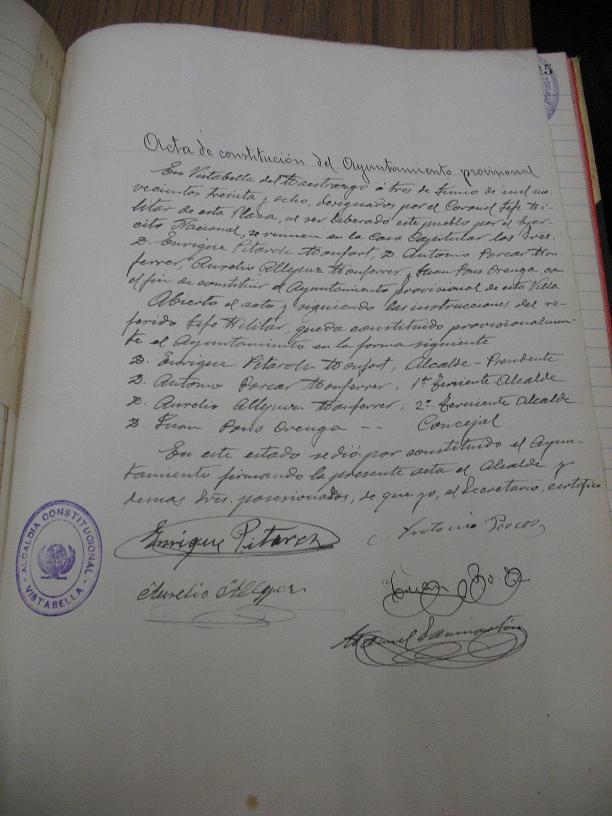 25
Acta de constitución del Ayuntamiento provisional
En Vistabella del Maestrazgo a tres de Junio de mil no-
vecientos treinta y ocho, designados por el Coronel Jefe Mi-
litar de esta Plaza, al ser liberado este pueblo por el Ejer-
cito Nacional, se reunen en la Casa Capitular los Sres.
D. Enrique Pitarch Monfort, D. Antonio Porcar Mon-
ferrer, Aurelio Allepuz Monferrer y Juan Pons Orenga, con
el fin de constituir el Ayuntamiento provisional de esta Villa
Abierto el acto y siguiendo las instrucciones del re-
ferido Jefe Militar, queda constituido provisionalmen-
te el Ayuntamiento en la forma siguiente
D. Enrique Pitarch Monfort, Alcalde-Presidente
D. Antonio Porcar Monferrer, 1er Teniente Alcalde
D. Aurelio Allepuz Monferrer, 2º Teniente Alcalde
D. Juan Pons Orenga -- Concejal
En este estado se dió por constituido el Ayun-
tamiento firmando la presente acta el Alcalde y
demas Sres. posesionados, de que yo, el Secretario, certifico
Enrique Pitarch
Antonio Porcar
Aurelio Allepuz
Juan Pons
Manuel
ALCALDIA CONSTITUCIONAL
- VISTABELLA -